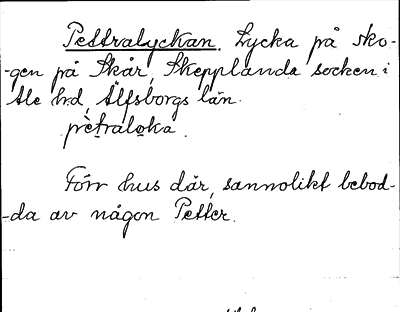 Pettralyckan. Lycka på sko-
-gen på Skår, Skepplanda socken i
Ale hd, Älfsborgs län.
pètraloka.
Förr hus där, sannolikt bebod-
-da av någon Petter.